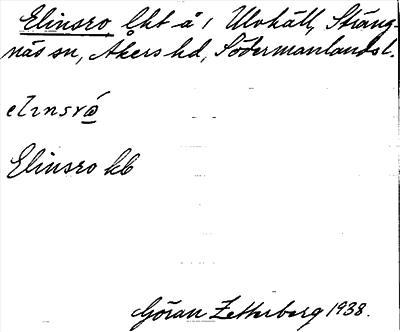 Elinsro, lht å 1 Ulvhäll, Sträng-
näs sn, Åkers hd, Södermanlands l.
elinsró
Elinsro kb
Göran Zetterberg 1938.